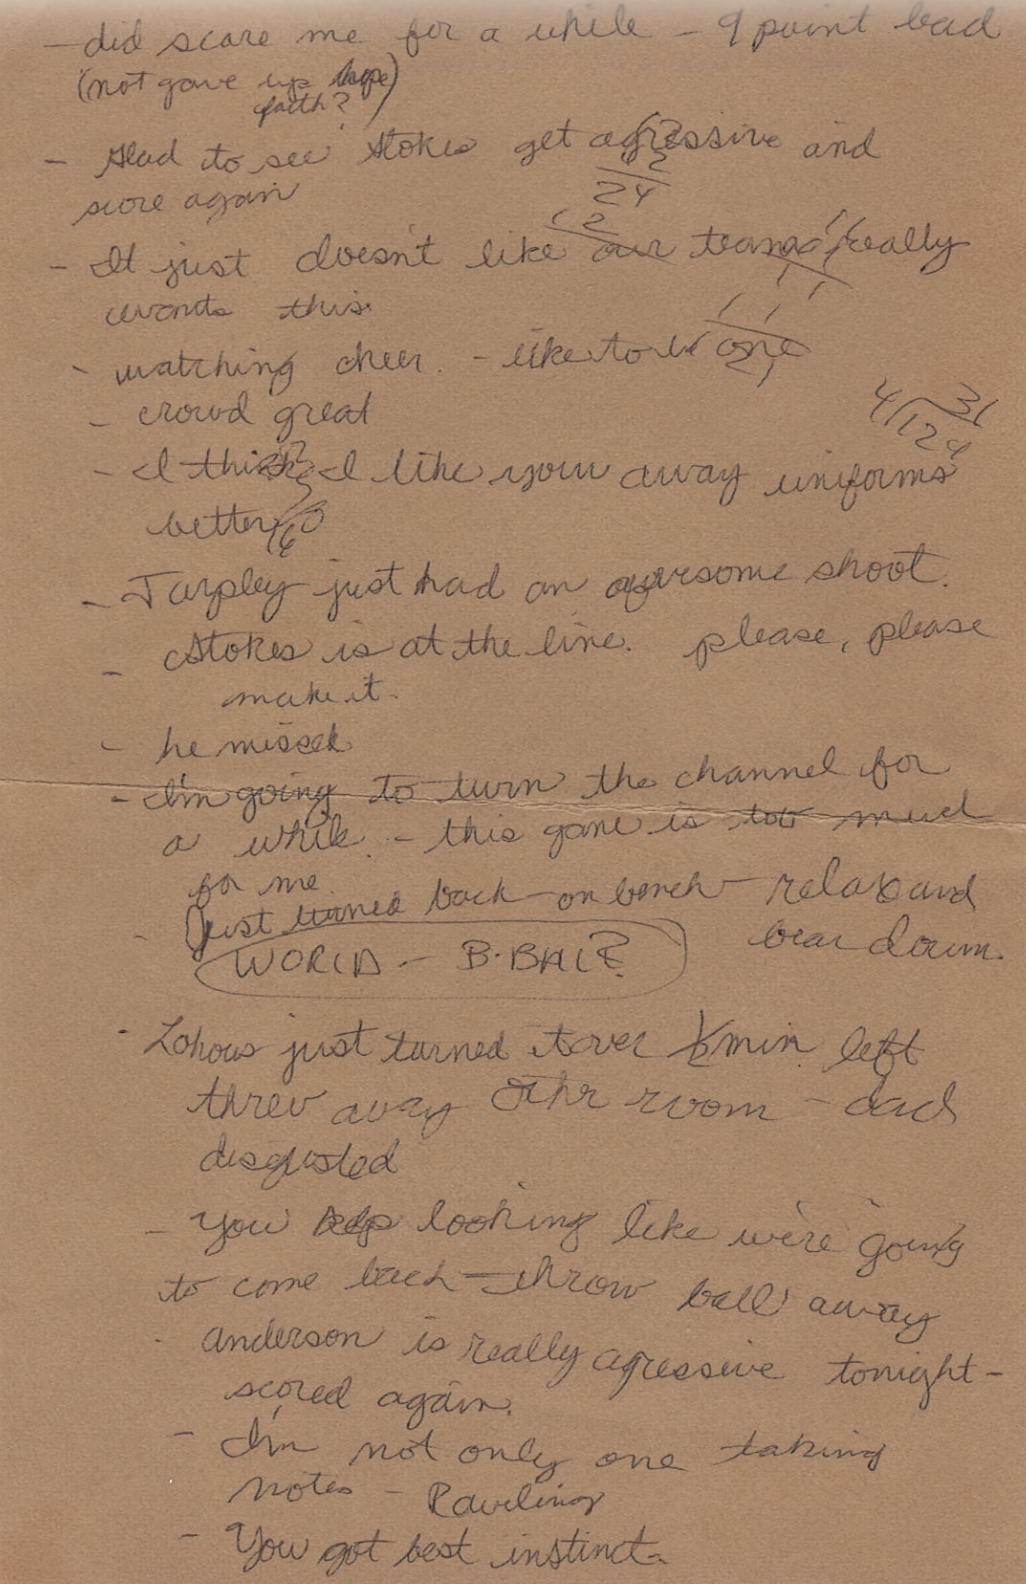 - did scare me for a while - 9 point bad
(not gave up hope)
faith?
- Glad to see Stokes get agressive and
score again
12
12
24
- It just doesn't like our team really
wants this.
- watching cheer. - like to be one
- crowd great
4 124 31
- I think I like your away uniforms
better
- Tarpley just had an awesome shoot.
- Stokes is at the line. please, please
make it.
- he missed
- I'm going to turn the channel for
a while. - this game is too much
for me.
- Just turned back - on bench - relax and
bear down.
WORLD - B. BALL?
- Lohous just turned it over 1/2 min. left
threw away other room - dad
disgusted
- You keep looking like we're going
to come back - throw ball away
- anderson is really agressive tonight -
scored again.
- I'm not only one taking
notes - Raveling
- You got best instinct.